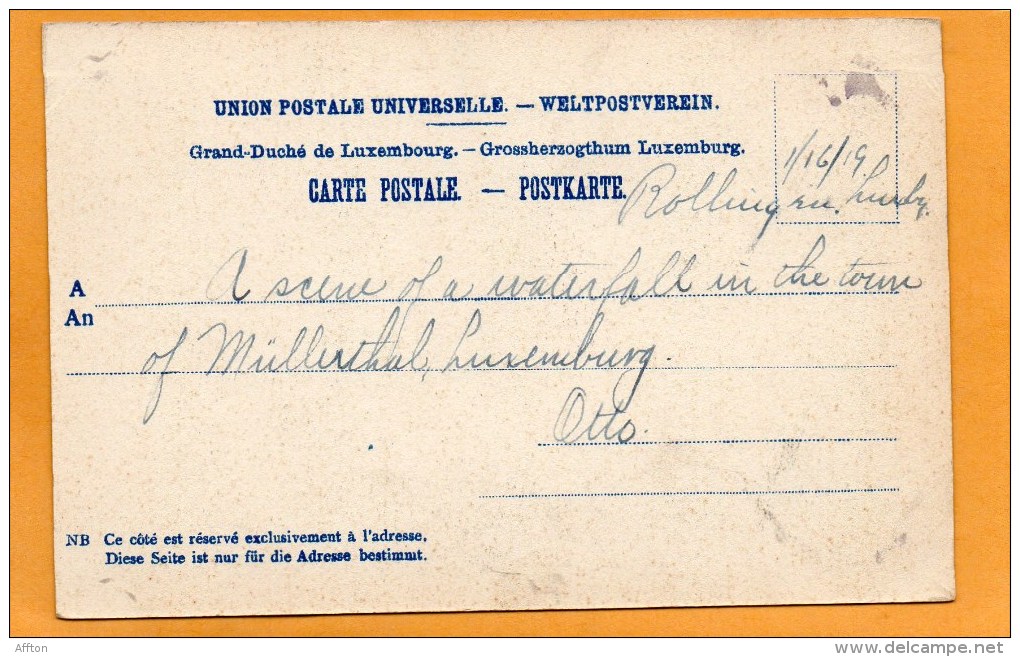 UNION POSTALE UNIVERSELLE. — WELTPOSTVEREIN.
Grand-Duché de Luxembourg. — Grossherzogthum Luxemburg.
CARTE POSTALE. — POSTKARTE.
1/16/19.
Rollingen. Luxbg.
A scene of a waterfall in the town
A
An
of Müllerthal, Luxemburg.
Otto.
NB Ce côté est réservé exclusivement à l'adresse.
Diese Seite ist nur für die Adresse bestimmt.
Affton
www.delcampe.net